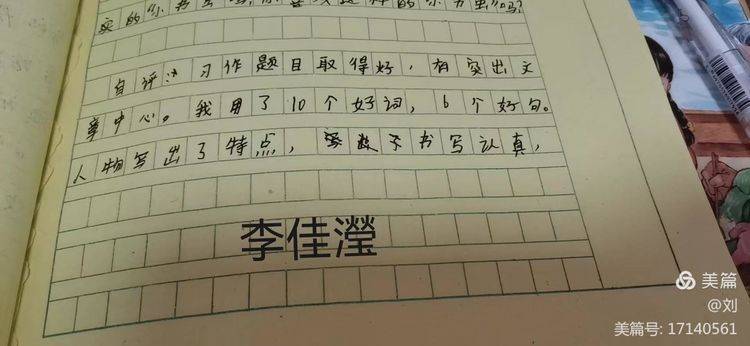 实的"小书虫"吗?
的"小书虫"吗?
自评:习作题目取得好,有突出文
章中心。我用了10个好词,6个好句。
人物写出了特点,书写认真,
李佳瀅
美篇
@刘
美篇号: 17140561